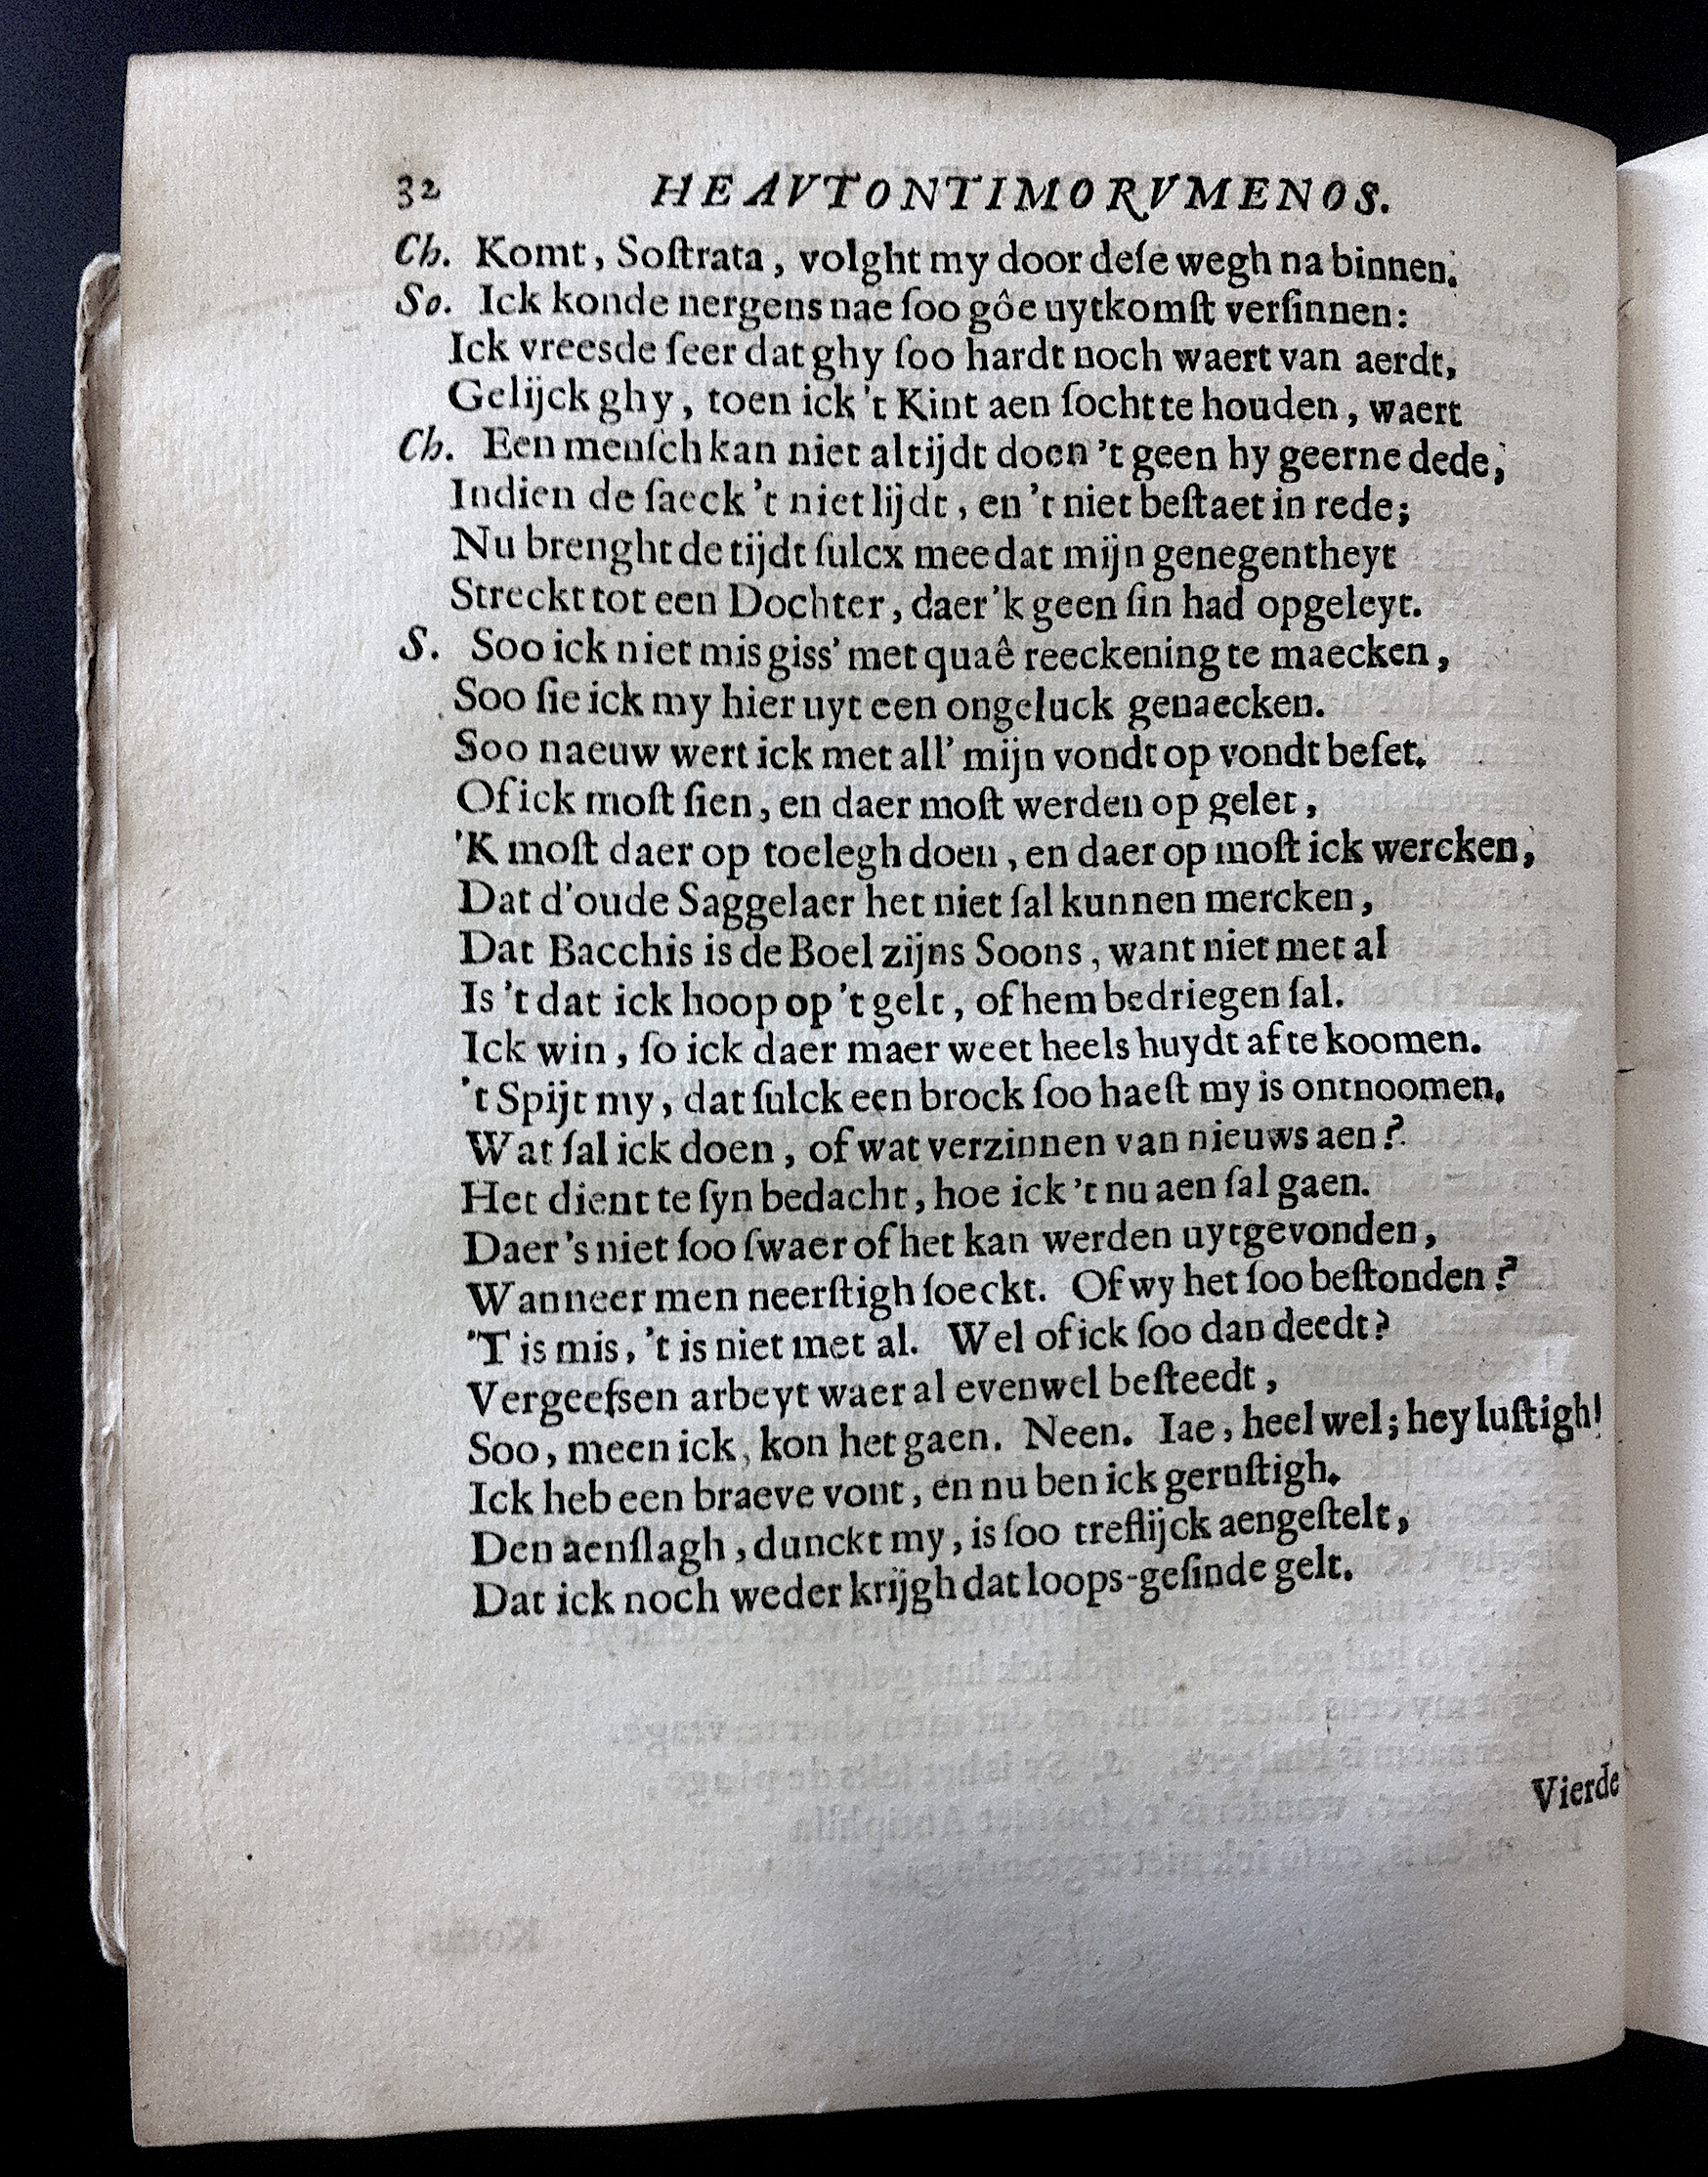 32 HEAVTONTIMORVMENOS.
Ch. Komt, Soſtrata, volght my door deſe wegh na binnen.
So. Ick konde nergens nae ſoo gôe uytkomſt verſinnen:
Ick vreesde ſeer dat ghy ſoo hardt noch waert van aerdt,
Gelijck ghy, toen ick 't Kint aen ſocht te houden, waert
Ch. Een menſch kan niet altijdt doen 't geen hy geerne dede,
Indien de ſaeck 't niet lijdt, en 't niet beſtaet in rede;
Nu brenght de tijdt ſulcx mee dat mijn genegentheyt
Streckt tot een Dochter, daer 'k geen ſin had opgeleyt.
S. Soo ick niet mis giss' met quaê reeckening te maecken,
Soo ſie ick my hier uyt een ongeluck genaecken.
Soo naeuw wert ick met all' mijn vondt op vondt beſet.
Of ick moſt ſien, en daer moſt werden op gelet,
'K moſt daer op toelegh doen, en daer op moſt ick wercken,
Dat d'oude Saggelaer het niet ſal kunnen mercken,
Dat Bacchis is de Boel zijns Soons, want niet met al
Is 't dat ick hoop op 't gelt, of hem bedriegen ſal.
Ick win, ſo ick daer maer weet heels huydt af te koomen.
't Spijt my, dat ſulck een brock ſoo haeſt my is ontnoomen.
Wat ſal ick doen, of wat verzinnen van nieuws aen?
Het dient te ſyn bedacht, hoe ick 't nu aen ſal gaen.
Daer 's niet ſoo ſwaer of het kan werden uytgevonden,
Wanneer men neerſtigh ſoeckt. Of wy het ſoo beſtonden?
'T is mis, 't is niet met al. Wel of ick ſoo dan deedt?
Vergeefsen arbeyt waer al evenwel beſteedt,
Soo, meen ick, kon het gaen. Neen. Iae, heel wel; hey luſtigh!
Ick heb een braeve vont, en nu ben ick geruſtigh.
Den aenſlagh, dunckt my, is ſoo treflijck aengeſtelt,
Dat ick noch weder krijgh dat loops-geſinde gelt.
Vierde